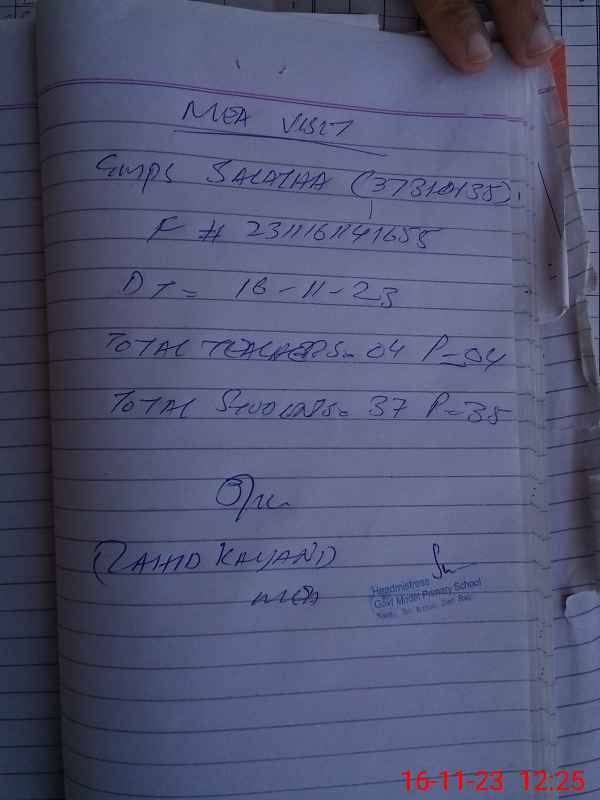 MEA VISIT
GMPS SALATHA (37310135).
F # 2311161141655
DT = 16-11-23
TOTAL TEACHERS = 04 P = 04
TOTAL STUDENTS = 37 P = 35
MEA
Headmistress
Govt Model Primary School
16-11-23 12:25